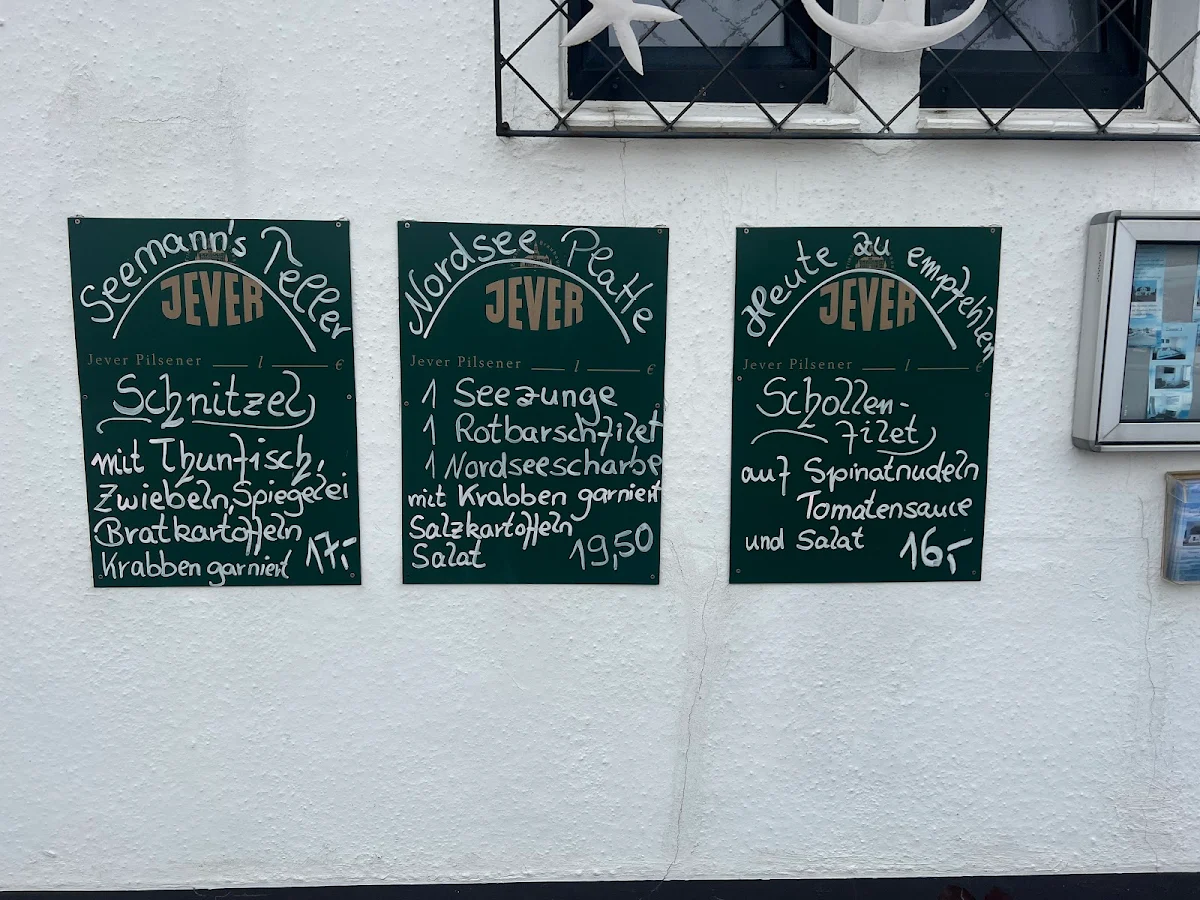 Seemann's Teller
JEVER
Jever Pilsener ___ l ___ €
Schnitzel
mit Thunfisch,
Zwiebeln, Spiegelei
Bratkartoffeln
Krabben garniert 17,-
Nordsee Platte
JEVER
Jever Pilsener ___ l ___ €
1 Seezunge
1 Rotbarschfilet
1 Nordseescharbe
mit Krabben garniert
Salzkartoffeln
Salat 19,50
Heute zu empfehlen
JEVER
Jever Pilsener ___ l ___ €
Schollen-
filet
auf Spinatnudeln
Tomatensauce
und Salat 16,-